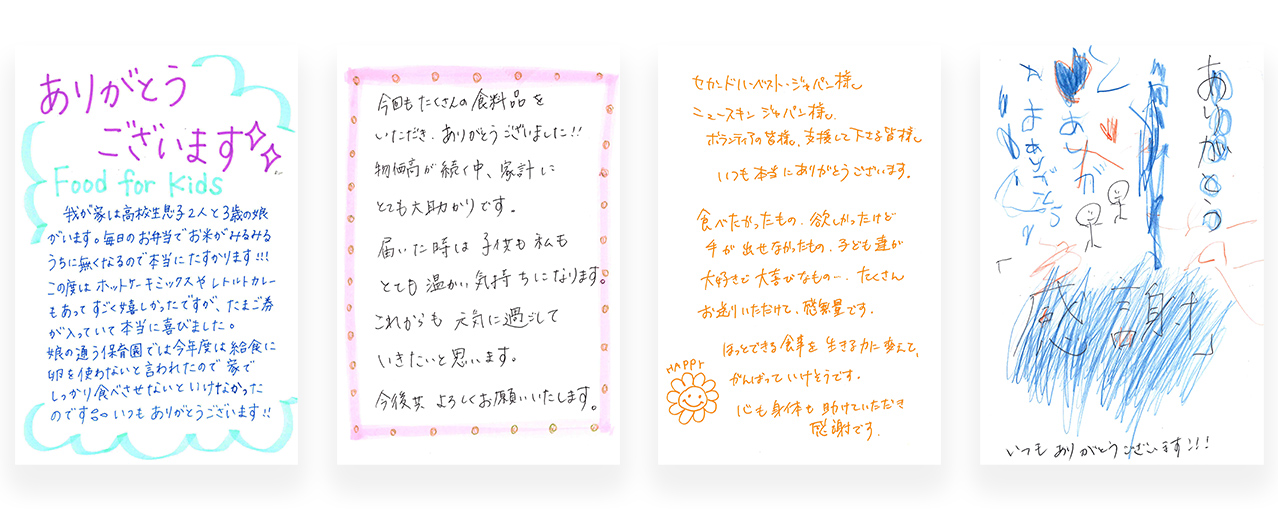 ありがとう
ございます
Food for Kids
我が家は高校生息子2人と3歳の娘
がいます。毎日のお弁当でお米がみるみる
うちに無くなるので本当にたすかります!!!
この度はホットケーキミックスやレトルトカレー
もあってすごく嬉しかったですが、たまご券
が入っていて本当に喜びました。
娘の通う保育園では今年度は給食に
卵を使わないと言われたので家で
しっかり食べさせないといけなかった
のです いつもありがとうございます!!
今回もたくさんの食料品を
いただき、ありがとうございました!!
物価高が続く中、家計に
とても大助かりです。
届いた時は子供も私も
とても温かい気持ちになります。
これからも元気に過ごして
いきたいと思います。
今後共よろしくお願いいたします。
セカンドハーベスト・ジャパン様。
ニュースキン ジャパン様。
ボランティアの皆様。支援して下さる皆様。
いつも本当にありがとうございます。
食べたかったもの、欲しかったけど
手が出せなかったもの、子ども達が
大好きで大喜びなもの…、たくさん
お送りいただけて、感無量です。
ほっとできる食事を生きる力に変えて、
がんばっていけそうです。
HAPPY
心も身体も助けていただき
感謝です。
ありがとう
「感謝」
いつもありがとうございます!!!